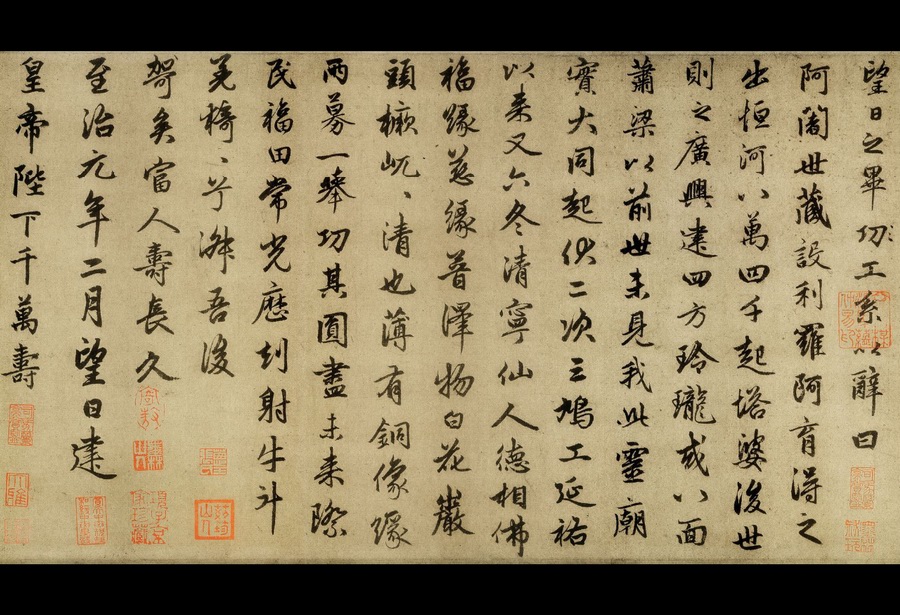 望日之畢功工系以辭曰
阿閦世藏設利羅阿育得之
出恒河八萬四千起塔婆後世
則之廣興建四方玲瓏或八面
蕭梁以前世未見我此靈廟
寶大同起伏二次三鳩工延祐
以来又六冬清寧仙人德相佛
福緣慈緣普澤物白花巖
頭橛屼〻清也薄有銅像緣
兩募一舉功其圓盡未来際
民福田常光歷刦射牛斗
羌檹〻兮淋吾後
賀矣富人壽長久
至治元年二月望日建
皇帝陛下千萬壽